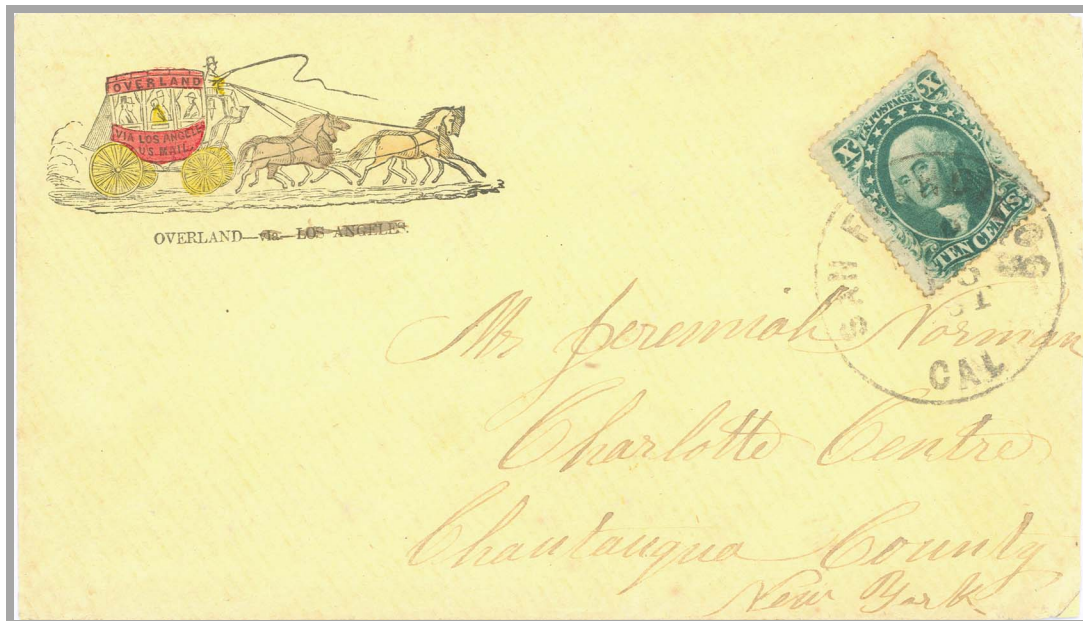 OVERLAND
VIA LOS ANGELES
U.S. MAIL
OVERLAND—via—LOS ANGELES.
X X
U.S. POSTAGE
TEN CENTS
SAN
CAL
Mr Jeremiah Norman
Charlotte Centre
Chautauqua County
New York